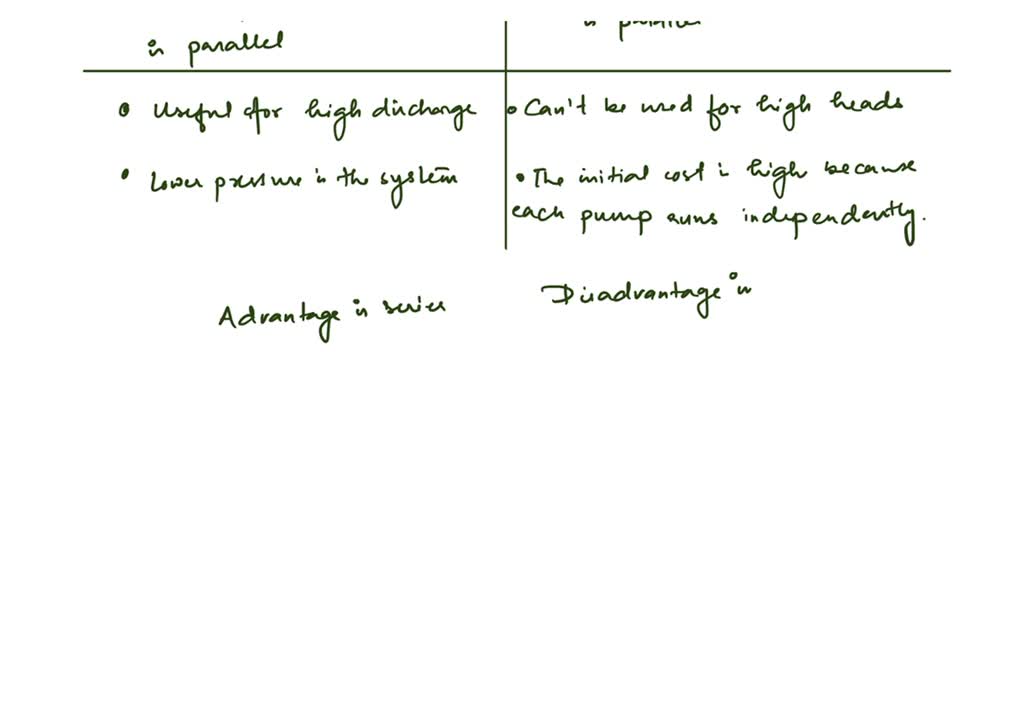 in parallel
in parallel
• Useful for high discharge
• Can't be used for high heads
• Lower pressure in the system
• The initial cost is high because
each pump runs independently.
Advantage in series
Disadvantage in